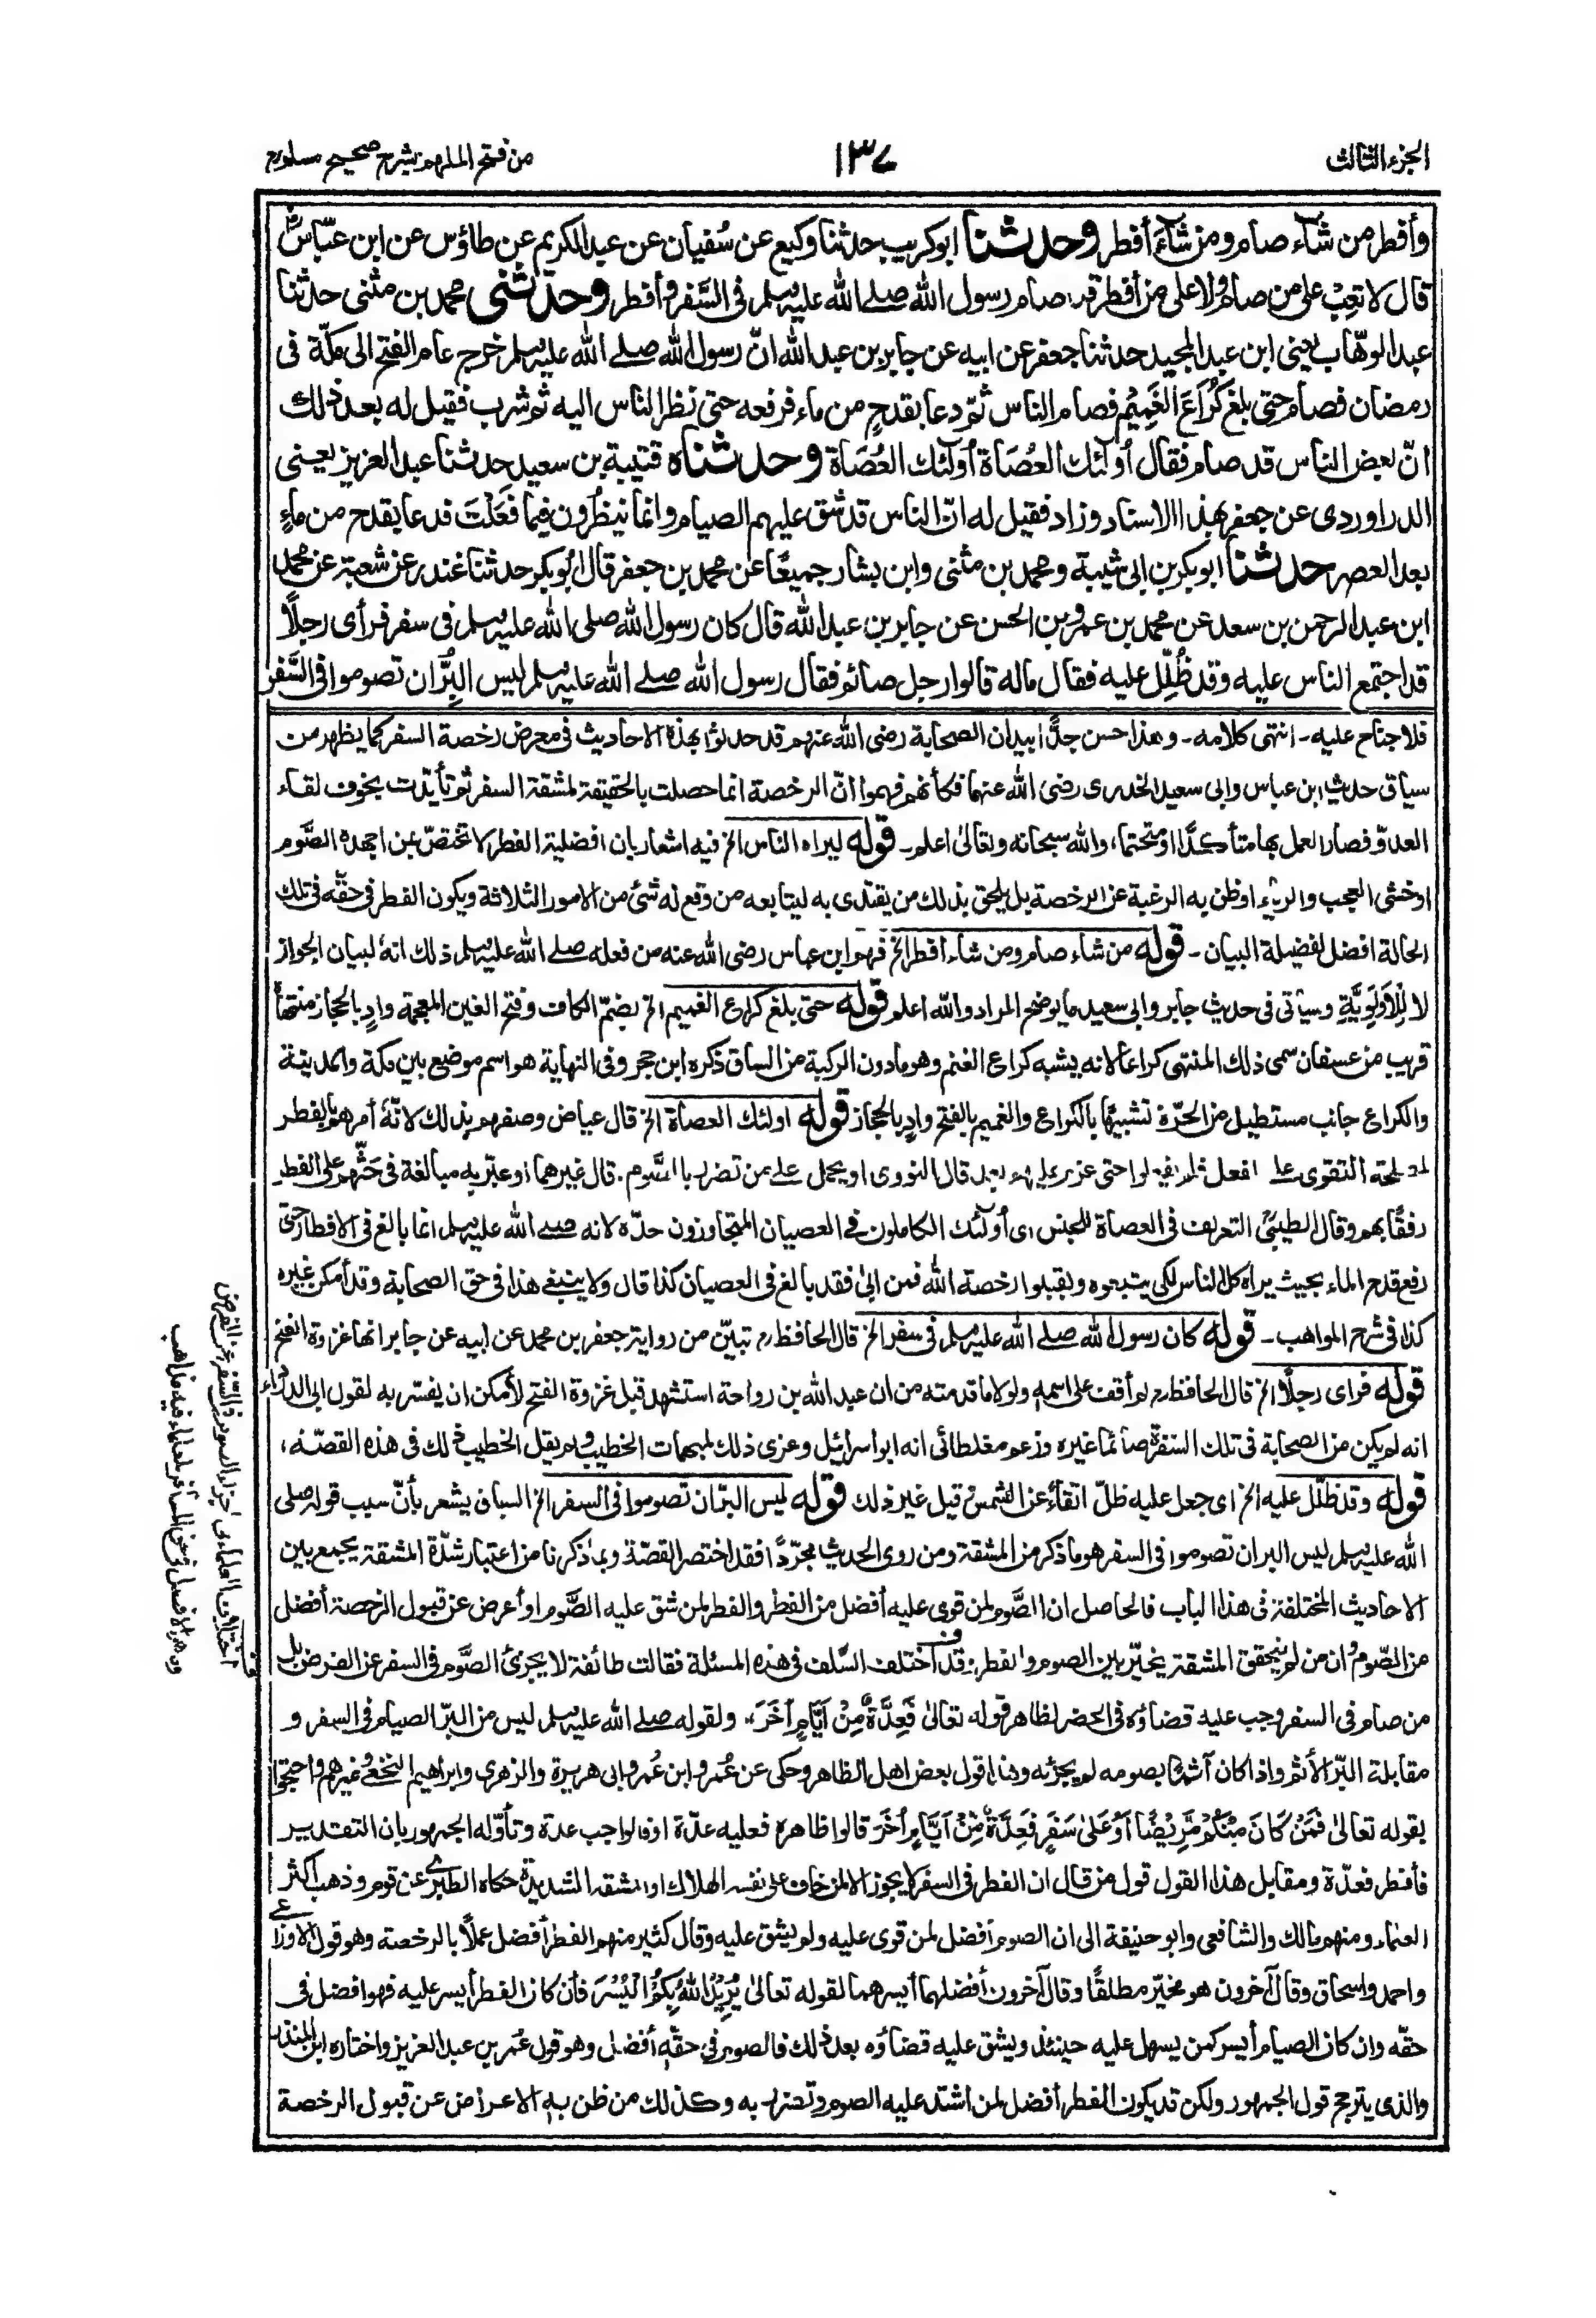 الجزء الثالث
١٣٧
من فتح الملهم بشرح صحيح مسلم
وأفطر من شاء صام ومن شاء أفطر وحدثنا ابوكريب حدثنا وكيع عن سفيان عن عبد الكريم عن طاؤس عن ابن عباس
قال لا تعب على من صام ولا على من أفطر قد صام رسول الله صلى الله عليه وسلم فى السفر وأفطر وحدثنى محمد بن مثنى حدثنا
عبد الوهاب يعنى ابن عبد المجيد حدثنا جعفر عن ابيه عن جابر بن عبد الله انّ رسول الله صلے الله عليه وسلم خرج عام الفتح الى مكّة فى
رمضان فصام حتى بلغ كُرَاعَ الغَمِيْم فصام الناس ثمّ دعا بقدحٍ من ماء فرفعه حتى نظر الناس اليه ثم شرب فقيل له بعد ذلك
انّ بعض الناس قد صام فقال أولٰئك العُصَاة أولٰئك العُصَاة وحدثناه قتيبة بن سعيد حدثنا عبد العزيز يعنى
الدراوردى عن جعفر بهذا الاسناد وزاد فقيل له انّ الناس قد شق عليهم الصيام وانما ينظرون فيما فَعَلْتَ فدعا بقدح من ماءٍ
بعد العصر حدثنا ابو بكر بن ابى شيبة ومحمد بن مثنى وابن بشار جميعًا عن محمد بن جعفر قال ابو بكر حدثنا غندر عن شعبة عن محمد
ابن عبد الرحمن بن سعد عن محمد بن عمرو بن الحسن عن جابر بن عبد الله قال كان رسول الله صلى الله عليه وسلم فى سفر فرأى رجلًا
قد اجتمع الناس عليه وقد ظُلِّل عليه فقال ماله قالوا رجل صائم فقال رسول الله صلے الله عليه وسلم ليس البِرّ ان تصوموا فى السَّفر
فلا جناح عليه - انتهى كلامه - وهذا حسن جدًّا بيد ان الصحابة رضى الله عنهم قد حدثوا بهذه الاحاديث فى معرض رخصة السفر كما يظهر من
سياق حديث ابن عباس وابى سعيد الخدرى رضى الله عنهما فكأنهم فهموا انّ الرخصة انما حصلت بالحقيقة لمشقة السفر ثم تأيّدت بخوف لقاء
العدوّ فصار العمل بها متأكدًا او متحتما، والله سبحانه وتعالىٰ اعلم - قوله ليراه الناس الخ فيه اشعار بان افضلية الفطر لا تختصّ بمن اجهده الصَّوم
اوخشى العجب والرياء او ظن به الرغبة عن الرخصة بل يلحق بذلك من يقتدى به ليتابعه من وقع له شئ من الامور الثلاثة ويكون الفطر فى حقّه فى تلك
الحالة افضل لفضيلة البيان - قوله من شاء صام ومن شاء أفطر الخ فهم ابن عباس رضى الله عنه من فعله صلے الله عليه وسلم ذلك انهٗ لبيان الجواز
لا لِلْاَوْلَوِيَّةِ وسيأتى فى حديث جابر وابى سعيد ما يوضح المراد والله اعلم قوله حتى بلغ كراع الغميم الخ بضمّ الكاف وفتح الغين المعجمة وادٍ بالحجاز منتهاهٗ
قريب من عسفان سمى ذلك المنتهى كراعًا لانه يشبه كراع الغنم وهو ما دون الركبة من الساق ذكره ابن حجر وفى النهاية هو اسم موضع بين مكة والمدينة
والكراع جانب مستطيل من الحرّة تشبيهًا بالكراع والغميم بالفتح وادٍ بالحجاز قوله اولئك العصاة الخ قال عياض وصفهم بذلك لانّهٗ أمرهم بالفطر
لمصلحة التقوى على الفعل فلم يفعلوا حتى عزم عليهم بعد قال النووى او يحمل على من تضرر بالصوم. قال غيرهما او عبّر به مبالغة فى حثّهم على الفطر
رفقًا بهم وقال الطيبىّ التعريف فى العصاة للجنس اى أولئك الكاملون فى العصيان المتجاوزون حدّه لانه صلے الله عليه وسلم انما بالغ فى الافطار حتى
رفع قدح الماء بحيث يراه كل الناس لكى يتبعوه ويقبلوا رخصة الله فمن ابىٰ فقد بالغ فى العصيان كذا قال ولا ينبغى هذا فى حق الصحابة وقد أمكن غيره
كذا فى شرح المواهب - قوله كان رسول الله صلے الله عليه وسلم فى سفر الخ قال الحافظ رح تبيّن من رواية جعفر بن محمد عن ابيه عن جابر انها غزوة الفتح
قوله فراى رجلًا الخ قال الحافظ رح لم أقف على اسمه ولولا ما قدمته من ان عبد الله بن رواحة استشهد قبل غزوة الفتح لأمكن ان يفسّر به لقول ابى الدرداء
انه لم يكن من الصحابة فى تلك السفرة صائمًا غيره وزعم مغلطائى انه ابو اسرائيل وعزى ذلك لمبهمات الخطيب ولم يقل الخطيب ذلك فى هذه القصّة،
قوله وقد ظلّل عليه الخ اى جعل عليه ظلّ اتقاءً عن الشمس وقيل غير ذلك قوله ليس البرّ ان تصوموا فى السفر الخ السياق يشعر بأنّ سبب قوله صلى
الله عليه وسلم ليس البر ان تصوموا فى السفر هو ما ذكر من المشقة ومن روى الحديث مجرّدًا فقد اختصر القصّة وبما ذكرنا من اعتبار شدّة المشقة يجمع بين
الاحاديث المختلفة فى هذا الباب فالحاصل ان الصَّوم لمن قوى عليه أفضل من الفطر والفطر لمن شق عليه الصَّوم او أعرض عن قبول الرخصة أفضل
من الصّوم وان من لم يتحقق المشقة يخيّر بين الصوم والفطر: وقد اختلف السَّلف فى هذه المسئلة فقالت طائفة لا يجزئ الصَّوم فى السفر عن الفرض بل
من صام فى السفر وجب عليه قضاؤه فى الحضر لظاهر قوله تعالىٰ فَعِدَّةٌ مِّنْ اَيَّامٍ اُخَرَ،، ولقوله صلے الله عليه وسلم ليس من البرّ الصيام فى السفر و
مقابلة البرّ الأثم واذا كان آثمًا بصومه لم يجزئه وهذا قول بعض اهل الظاهر وحكى عن عُمر وابن عُمر وابى هريرة والزهرى وابراهيم النخعى وغيرهم واحتجوا
بقوله تعالىٰ فَمَنْ كَانَ مِنْكُمْ مَّرِيْضًا اَوْ عَلىٰ سَفَرٍ فَعِدَّةٌ مِّنْ اَيَّامٍ اُخَرَ قالوا ظاهره فعليه عدّة او فالواجب عدة وتأوّله الجمهور بان التقدير
فأفطر فعدّة ومقابل هذا القول قول من قال ان الفطر فى السفر لا يجوز الا لمن خاف على نفسه الهلاك او المشقة الشديدة حكاه الطبرى عن قوم وذهب أكثر
العلماء ومنهم مالك والشافعى وابو حنيفة الى ان الصوم أفضل لمن قوى عليه ولم يشق عليه وقال كثير منهم الفطر أفضل عملًا بالرخصة وهو قول الاوزاعى
واحمد واسحاق وقال آخرون هو مخيّر مطلقًا وقال آخرون أفضلهما أيسرهما لقوله تعالىٰ يُرِيْدُ اللّٰهُ بِكُمُ الْيُسْرَ فأن كان الفطر أيسر عليه فهو افضل فى
حقّه وان كان الصيام أيسر كمن يسهل عليه حينئذ ويشق عليه قضاؤه بعد ذلك فالصوم فى حقّه أفضل وهو قول عُمر بن عبد العزيز واختاره ابن المنذر
والذى يترجح قول الجمهور ولكن قد يكون الفطر أفضل لمن اشتد عليه الصوم وتضرر به وكذلك من ظن به الاعراض عن قبول الرخصة
اختلاف العلماء فى اجزاء الصوم فى السفر عن الفرض
وهو الافضل فى حق المسافر للعلماء فيه مذاهب